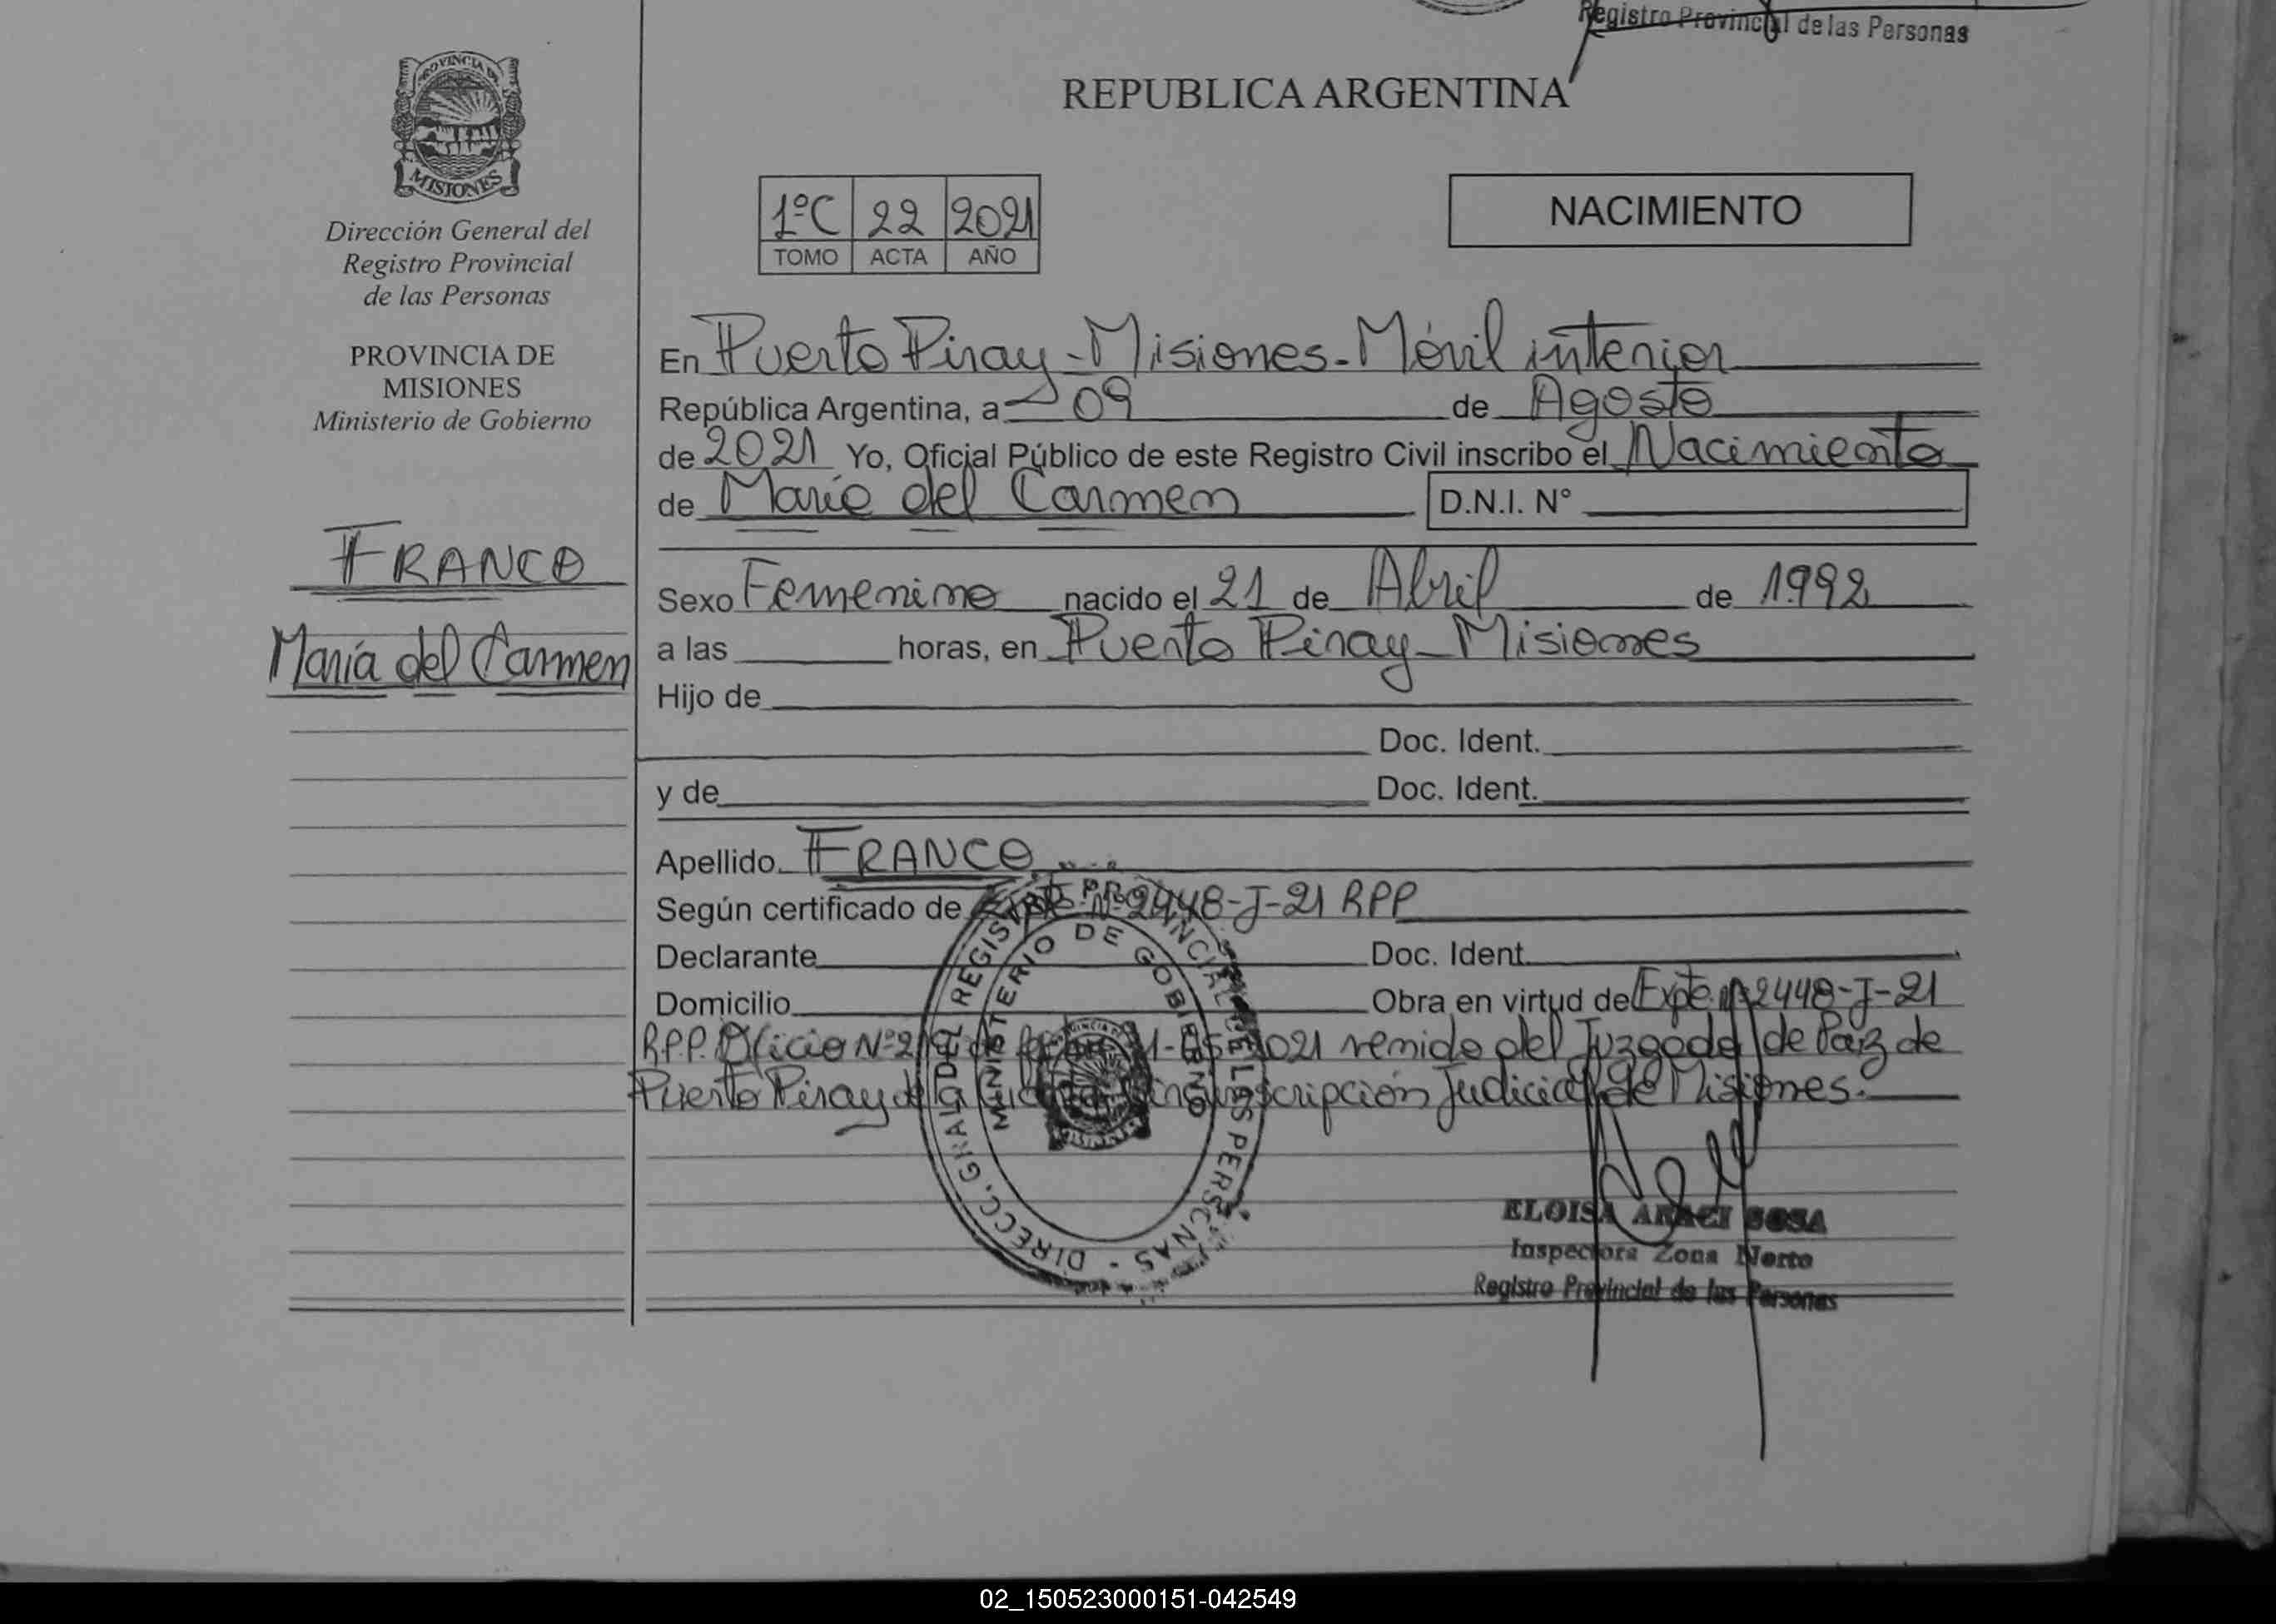 Registro Provincial de las Personas
REPUBLICA ARGENTINA
PROVINCIA DE
MISIONES
Dirección General del
Registro Provincial
de las Personas
PROVINCIA DE
MISIONES
Ministerio de Gobierno
FRANCO
María del Carmen
1ºC 22 2021
TOMO ACTA AÑO
NACIMIENTO
En Puerto Piray - Misiones - Móvil interior
República Argentina, a 09 de Agosto
de 2021 Yo, Oficial Público de este Registro Civil inscribo el Nacimiento
de María del Carmen D.N.I. Nº
Sexo Femenino nacido el 21 de Abril de 1992
a las horas, en Puerto Piray - Misiones
Hijo de
Doc. Ident.
y de Doc. Ident.
Apellido FRANCO
Según certificado de Expte. Nº 2448-J-21 RPP
Declarante Doc. Ident.
Domicilio Obra en virtud de Expte. Nº 2448-J-21
R.P.P. Oficio Nº 2021 remido del Juzgado de Paz de
Puerto Piray de la inscripción Judicial de Misiones.
DIRECC. GRAL DEL REGISTRO PROVINCIAL DE LAS PERSONAS -
MINISTERIO DE GOBIERNO
ELOISA ARACI SOSA
Inspectora Zona Norte
Registro Provincial de las Personas
02_150523000151-042549